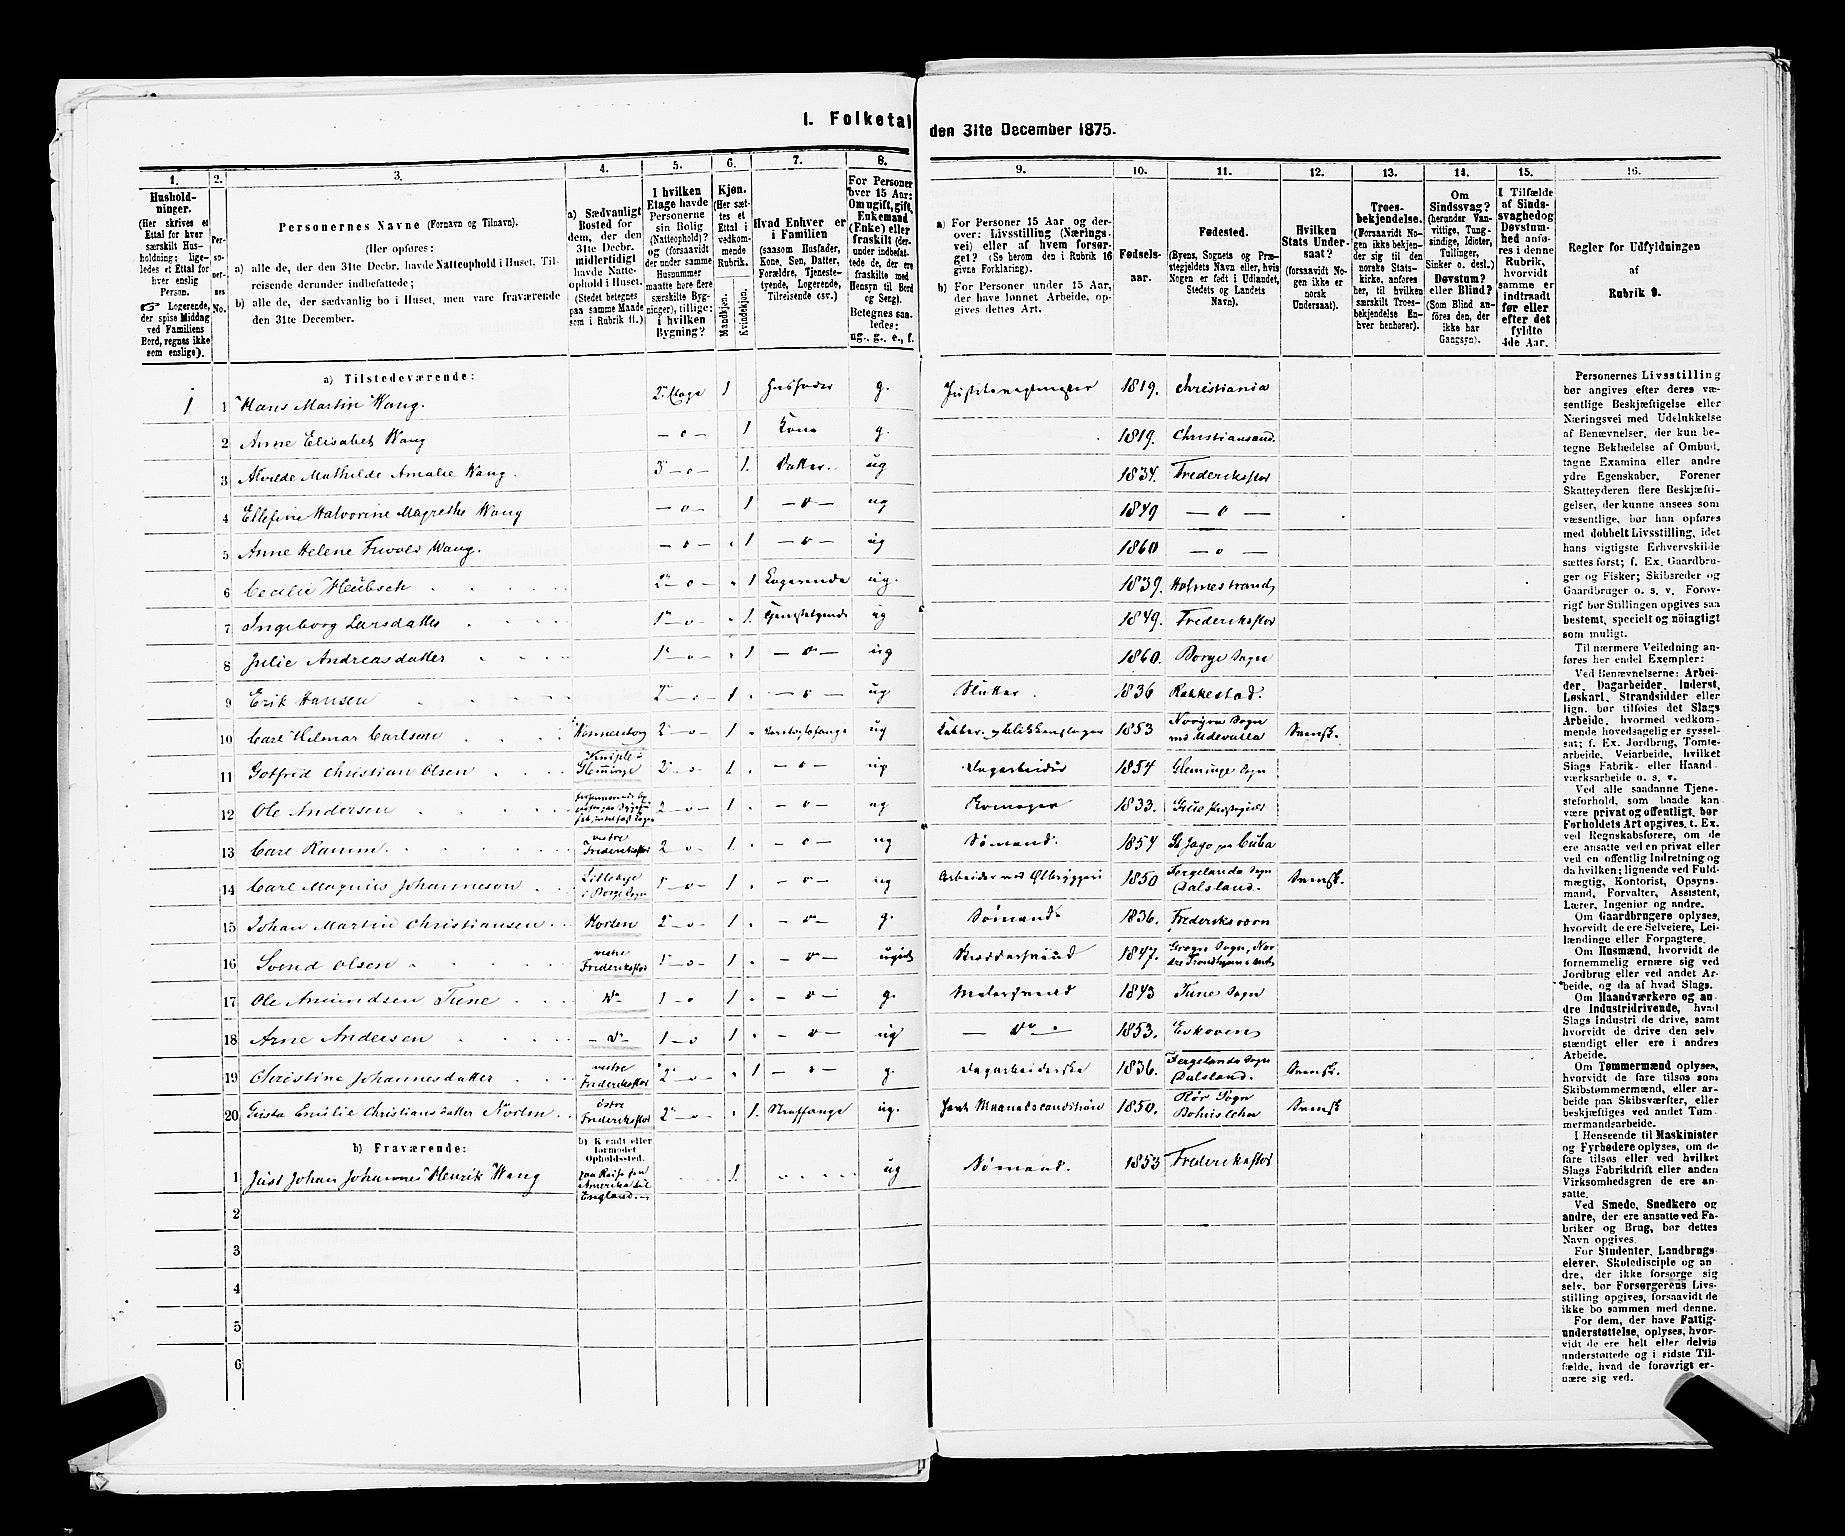 I. Folketal den 31te December 1875.
1. 2. 3. 4. 5. 6. 7. 8. 9. 10. 11. 12. 13. 14. 15. 16.
Husholdninger.
(Her skrives et
Ettal for hver
særskilt Husholdning;
ligeledes et Ettal for
hver enslig
Person.
☞ Logerende,
der spise Middag
ved Familiens
Bord, regnes ikke
som enslige).
Personernes No.
Personernes Navne (Fornavn og Tilnavn).
(Her opføres:
a) alle de, der den 31te Decbr. havde Natteophold i Huset, Tilreisende derunder indbefattede;
b) alle de, der sædvanlig bo i Huset, men vare fraværende
den 31te December.
a) Sædvanligt
Bosted for
dem, der den
31te Decbr.
midlertidigt
havde Natteophold i Huset.
(Stedet betegnes
paa samme Maade
som i Rubrik 11.)
I hvilken
Etage havde
Personerne
sin Bolig
(Natteophold)?
(forsaavidt
der under samme
Husnummer
maatte høre flere
særskilte Bygninger), tillige:
i hvilken
Bygning?
Kjøn.
(Her sættes et
Ettal i
vedkommende
Rubrik.
Mandkjøn.
Kvindekjøn.
Hvad Enhver er
i Familien
(saasom Husfader,
Kone, Søn, Datter,
Forældre, Tjenestetyende, Logerende,
Tilreisende osv.)
For Personer
over 15 Aar:
Om ugift, gift,
Enkemand
(Enke) eller
fraskilt (derunder indbefattede de, der ere
fraskilte med
Hensyn til Bord
og Seng).
Betegnes saaledes:
ug., g., e., f.
a) For Personer 15 Aar og derover: Livsstilling (Næringsvei) eller af hvem forsørget? (Se herom den i Rubrik 16
givne Forklaring).
b) For Personer under 15 Aar,
der have lønnet Arbeide, opgives dettes Art.
Fødselsaar.
Fødested.
(Byens, Sognets og Præstegjeldets Navn eller, hvis
Nogen er født i Udlandet,
Stedets og Landets
Navn).
Hvilken
Stats Undersaat?
(forsaavidt Nogen ikke er
norsk
Undersaat).
Troesbekjendelse.
(Forsaavidt Nogen ikke bekjender sig til den
norske Statskirke, anføres
her, til hvilken
særskilt Troesbekjendelse Enhver henhører).
Om
Sindssvag?
(herunder Vanvittige, Tungsindige, Idioter,
Tullinger,
Sinker o. desl.)
Døvstum?
eller Blind?
(Som Blind anføres den, der
ikke har
Gangsyn).
I Tilfælde
af Sindssvaghed og
Døvstumhed anføres i denne
Rubrik,
hvorvidt
samme er
indtraadt
før eller
efter det
fyldte
4de Aar.
Regler for Udfyldningen
af
Rubrik 9.
a) Tilstedeværende:
1 1 Hans Martin Wang. 2n Etage 1 Husfader g. 1819. Christiania
2 Anne Elisabet Wang — o — 1 Kone g. 1819. Christiansand.
3 Alvilde Mathilde Amalie Wang. — o — 1. Datter. ug 1834. Frederikstad
4 Ellefine Halvorine Magrethe Wang — o — 1 — o — ug 1849 — o —
5 Anne Helene Wang. — o — 1 — o — ug 1860 — o —
6 Cecilie Heübsch — o — 1 Logerende ug. 1839. Holmestrand
7 Ingeborg Larsdatter — o — 1. Tjenstetyende ug 1849. Frederikstad
8 Julie Andreasdatter — o — 1 — o — ug 1860. Borge Sogn
9 Erik Hansen — o — 1 — o — ug 1836 Rakkestad.
10 Carl Hilmar Carlsen 2 — o — 1 Varetægtsfange ug Kobber- og Blikkenslager 1853 Sogn Udevalla Svensk.
11 Gotfrid Christian Olsen Glemminge 2 — o — 1 — o — ug Dagarbeider 1854 Gleminge Sogn
12 Ole Andersen 2 — o — 1 — o — ug 1833.
13 Carl Ramm. vestre Frederikstad 2 — o — 1. — o — ug Sømand. 1854 St Jago paa Cuba
14 Carl Magnus Johanneson i Borge Sogn — o — 1 — o — ug Arbeider ved Ølbryggeri 1850 Fergelanda Sogn Dalsland. Svensk.
15 Johan Martin Christiansen Horten 2 — o — 1 — o — g. Sømand 1836. Frederiksværn
16 Svend Olsen vestre Frederikstad — o — 1 — o — ugift 1847.
17 Ole Amundsen Tune Do 1 — o 1 — o — g. Malersvend 1843 Tune Sogn
18 Arne Andersen — o — 1 — o 1 — o — ug — Do — 1853.
19 Christine Johannesdatter vestre Frederikstad 2 — o — 1 — o — g. Dagarbeiderske 1836. Fergelanda Sogn Dalsland. Svensk.
20 Emilie Christiansdatter østre Frederikstad 2 — o — 1. Straffange ug. 1850. Sogn Bohuslehn Svensk
b) Fraværende:
b) Kjendt eller
formodet
Opholdssted.
1 Just Johan Johannes Henrik Wang paa Reise fra Amerika til England. 1. ug Sømand. 1853 Frederikstad
2
3
4
5
6
Personernes Livsstilling
bør angives efter deres væsentlige Beskjæftigelse eller
Næringsvei med Udelukkelse
af Benævnelser, der kun betegne Beklædelse af Ombud,
tagne Examina eller andre
ydre Egenskaber. Forener
Skatteyderen flere Beskjæftigelser, der kunne ansees som
væsentlige, bør han opføres
med dobbelt Livsstilling, idet
hans vigtigste Erhvervskilde
sættes først; f. Ex. Gaardbruger og Fisker; Skibsreder og
Gaardbruger o. s. v. Forøvrigt bør Stillingen opgives saa
bestemt, specielt og nöiagtigt
som muligt.
Til nærmere Veiledning anføres her endel Exempler:
Ved Benævnelserne: Arbeider, Dagarbeider, Inderst,
Løskarl, Strandsidder eller
lign. bør tilføies det Slags
Arbeide, hvormed vedkommende hovedsagelig er sysselsat; f. Ex. Jordbrug, Tomtearbeide, Veiarbeide, hvilket
Slags Fabrik- eller Haandværksarbeide o. s. v.
Ved alle saadanne Tjenesteforhold, som baade kan
være privat og offentligt, bør
Forholdets Art opgives, t. Ex.
ved Regnskabsførere, om de
ere ansatte ved en privat eller
ved en offentlig Indretning og
da hvilken; lignende ved Fuldmægtig, Kontorist, Opsynsmand, Forvalter, Assistent,
Lærer, Ingeniør og andre.
Om Gaardbrugere oplyses,
hvorvidt de ere Selveiere, Leilændinge eller Forpagtere.
Om Husmænd, hvorvidt de
fornemmelig ernære sig ved
Jordbrug eller ved andet Arbeide, og da af hvad Slags.
Om Haandværkere og andre Industridrivende, hvad
Slags Industri de drive, samt
hvorvidt de drive den selvstændigt eller ere i andres
Arbeide.
Om Tømmermænd oplyses,
hvorvidt de fare tilsøs som
Skibstømmermænd, eller arbeide paa Skibsværfter, eller
beskjæftiges ved andet Tømmermandsarbeide.
I Henseende til Maskinister
og Fyrbødere oplyses, om de
fare tilsøs eller ved hvilket
Slags Fabrikdrift eller anden
Virksomhedsgren de ere ansatte.
Ved Smede, Snedkere og
andre, der ere ansatte ved Fabriker og Brug, bør dettes
Navn opgives.
For Studenter, Landbrugselever, Skoledisciple og andre, der ikke forsørge sig
selv, bør Forsørgerens Livsstilling opgives, forsaavidt de
ikke bo sammen med denne.
For dem, der have Fattigunderstøttelse, oplyses, hvorvidt de ere helt eller delvis
understøttede og i sidste Tilfælde, hvad de forøvrigt ernære sig ved.